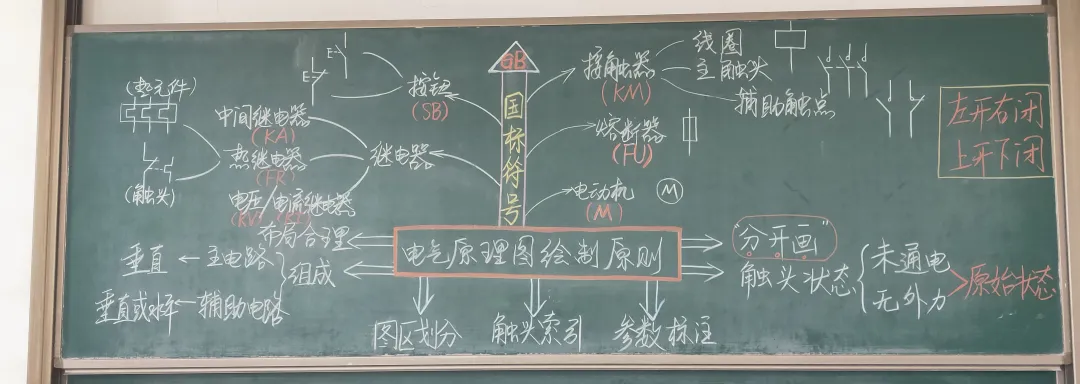 GB
国标符号
按钮
(SB)
继电器
中间继电器
(KA)
热继电器
(FR)
电压/电流继电器
(热元件)
(触头)
E
E
接触器
(KM)
线圈
主触头
辅助触点
熔断器
(FU)
电动机
(M)
M
左开右闭
上开下闭
电气原理图绘制原则
布局合理
组成
主电路
垂直
辅助电路
垂直或水平
图区划分
触头索引
参数标注
"分开画"
触头状态
未通电
无外力
原始状态